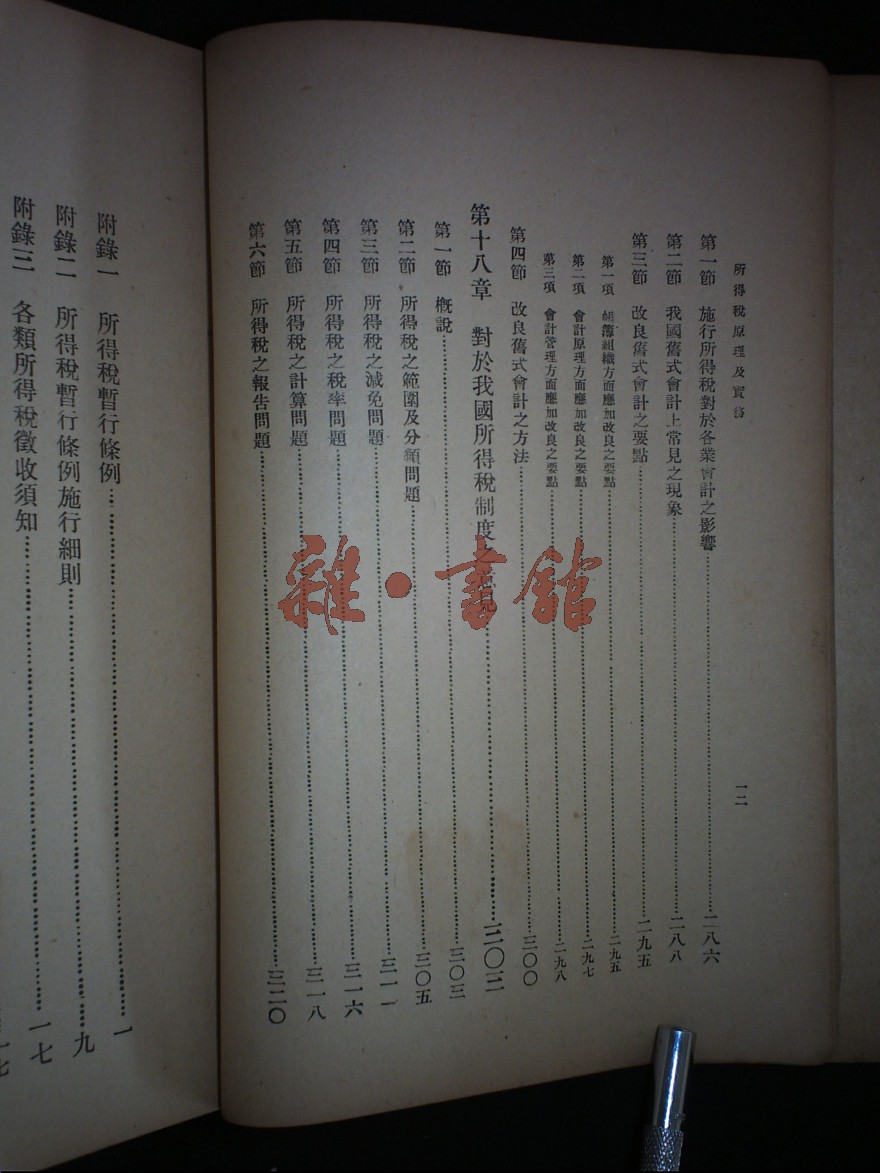 所得稅原理及實務
一二
第一節 施行所得稅對於各業會計之影響…………二八六
第二節 我國舊式會計上常見之現象…………二八八
第三節 改良舊式會計之要點…………二九五
第一項 帳簿組織方面應加改良之要點…………二九五
第二項 會計原理方面應加改良之要點…………二九七
第三項 會計管理方面應加改良之要點…………二九八
第四節 改良舊式會計之方法…………三〇〇
第十八章 對於我國所得稅制度之意見…………三〇三
第一節 概說…………三〇三
第二節 所得稅之範圍及分類問題…………三〇五
第三節 所得稅之減免問題…………三一一
第四節 所得稅之稅率問題…………三一六
第五節 所得稅之計算問題…………三一八
第六節 所得稅之報告問題…………三二〇
附錄一 所得稅暫行條例…………一
附錄二 所得稅暫行條例施行細則…………九
附錄三 各類所得稅徵收須知…………一七
雜·書館